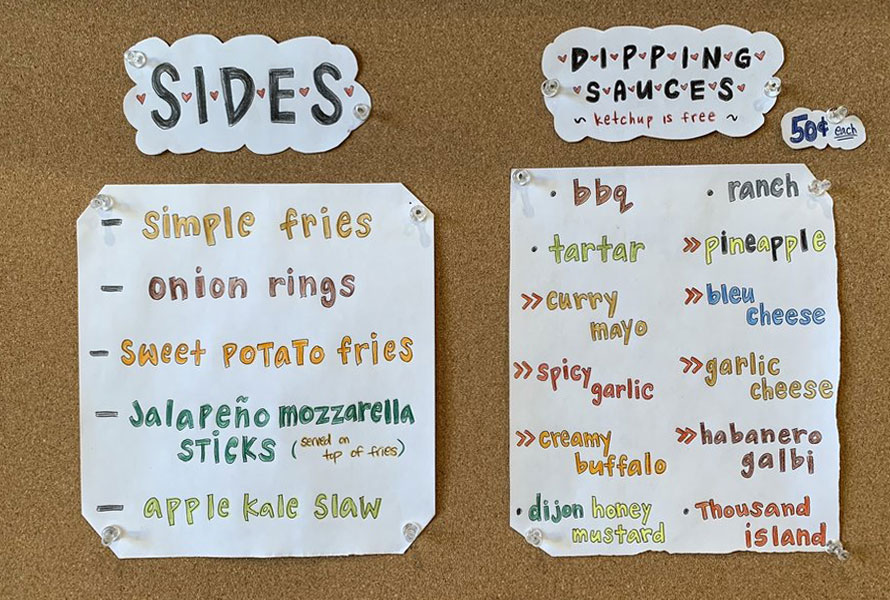 SIDES
simple fries
onion rings
sweet potato fries
Jalapeño mozzarella
sticks (served on
top of fries)
apple kale slaw
DIPPING
SAUCES
~ ketchup is free ~
50¢ each
• bbq
• tartar
» curry
mayo
» spicy
garlic
» creamy
buffalo
• dijon honey
mustard
• ranch
» pineapple
» bleu
cheese
» garlic
cheese
» habanero
galbi
• Thousand
island